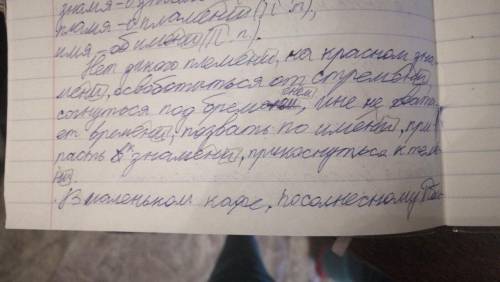 знамя - о знамени
пламя - о пламени (П. п),
имя - об имени (П. п).
Нет дикого племени, на красном зна-
мени, освободиться от стремени,
согнуться под бременем, мне не хвата-
ет времени, позвать по имени, при-
пасть к знамени, прикоснуться к теме-
ни.
В маленьком кафе,